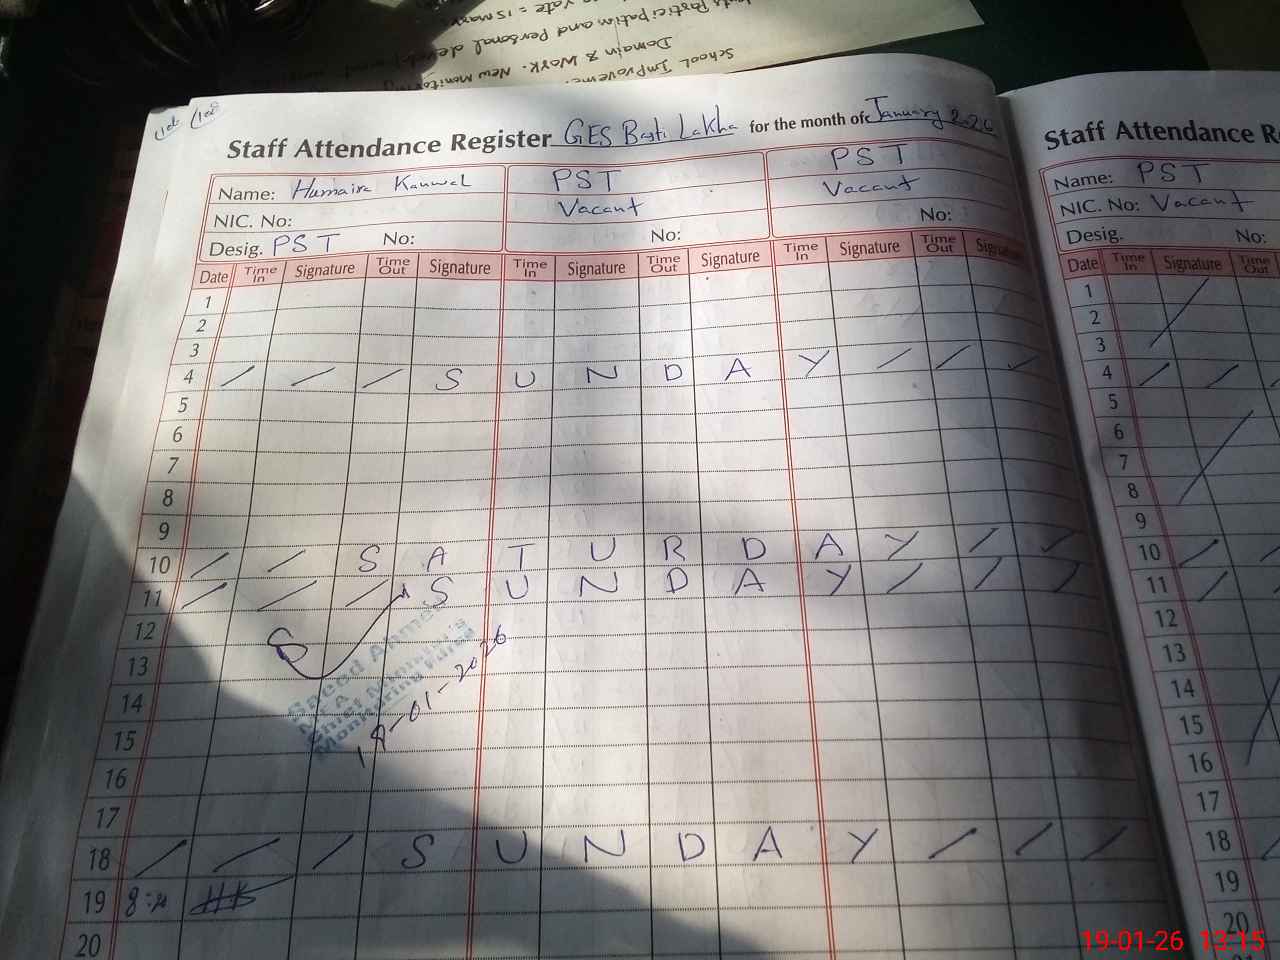 School Improveme
Domain & Work. New Monitoring
Participation and Personal develop
rate = 15 mar
Staff Attendance Register GES Basti Lakha for the month of January 2026
Name: Humaira Kanwal PST PST
NIC. No: Vacant Vacant
Desig. PST No: No: No:
Date Time In Signature Time Out Signature Time In Signature Time Out Signature Time In Signature Time Out Signature
1
2
3
4 / / / S U N D A Y / / /
5
6
7
8
9
10 / / S A T U R D A Y / /
11 / / / S U N D A Y / / /
12
13
14
15
16
17
18 / / / S U N D A Y / / /
19
20
Saeed Ahmed
MEA
Chief Minister's
Monitoring Force
19-01-2026
Staff Attendance R
Name: PST
NIC. No: Vacant
Desig. No:
Date Time In Signature Time Out
1
2
3
4 / / /
5
6
7
8
9
10 / /
11 / /
12
13
14
15
16
17
18
19
20
19-01-26 13:15